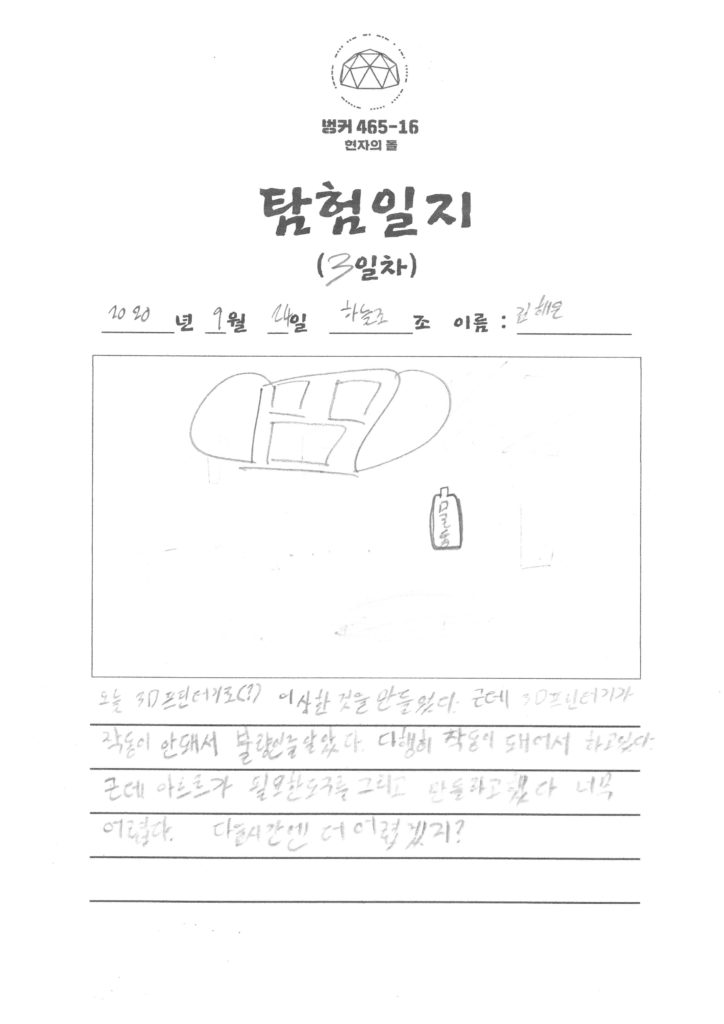 벙커 465-16
현자의 돌
탐험일지
(3일차)
2020 년 9월 24일 하늘조 조 이름 : 해온
물통
오늘 3D프린터기로(?) 이상한 것을 만들었다. 근데 3D프린터기가
작동이 안돼서 불량인늘알았다. 다행히 작동이 돼어서 하고있다.
근데 아르트가 필요한도구를 그리고 만들라고 했다 너무
어렵다. 다음시간엔 더 어렵겠지?